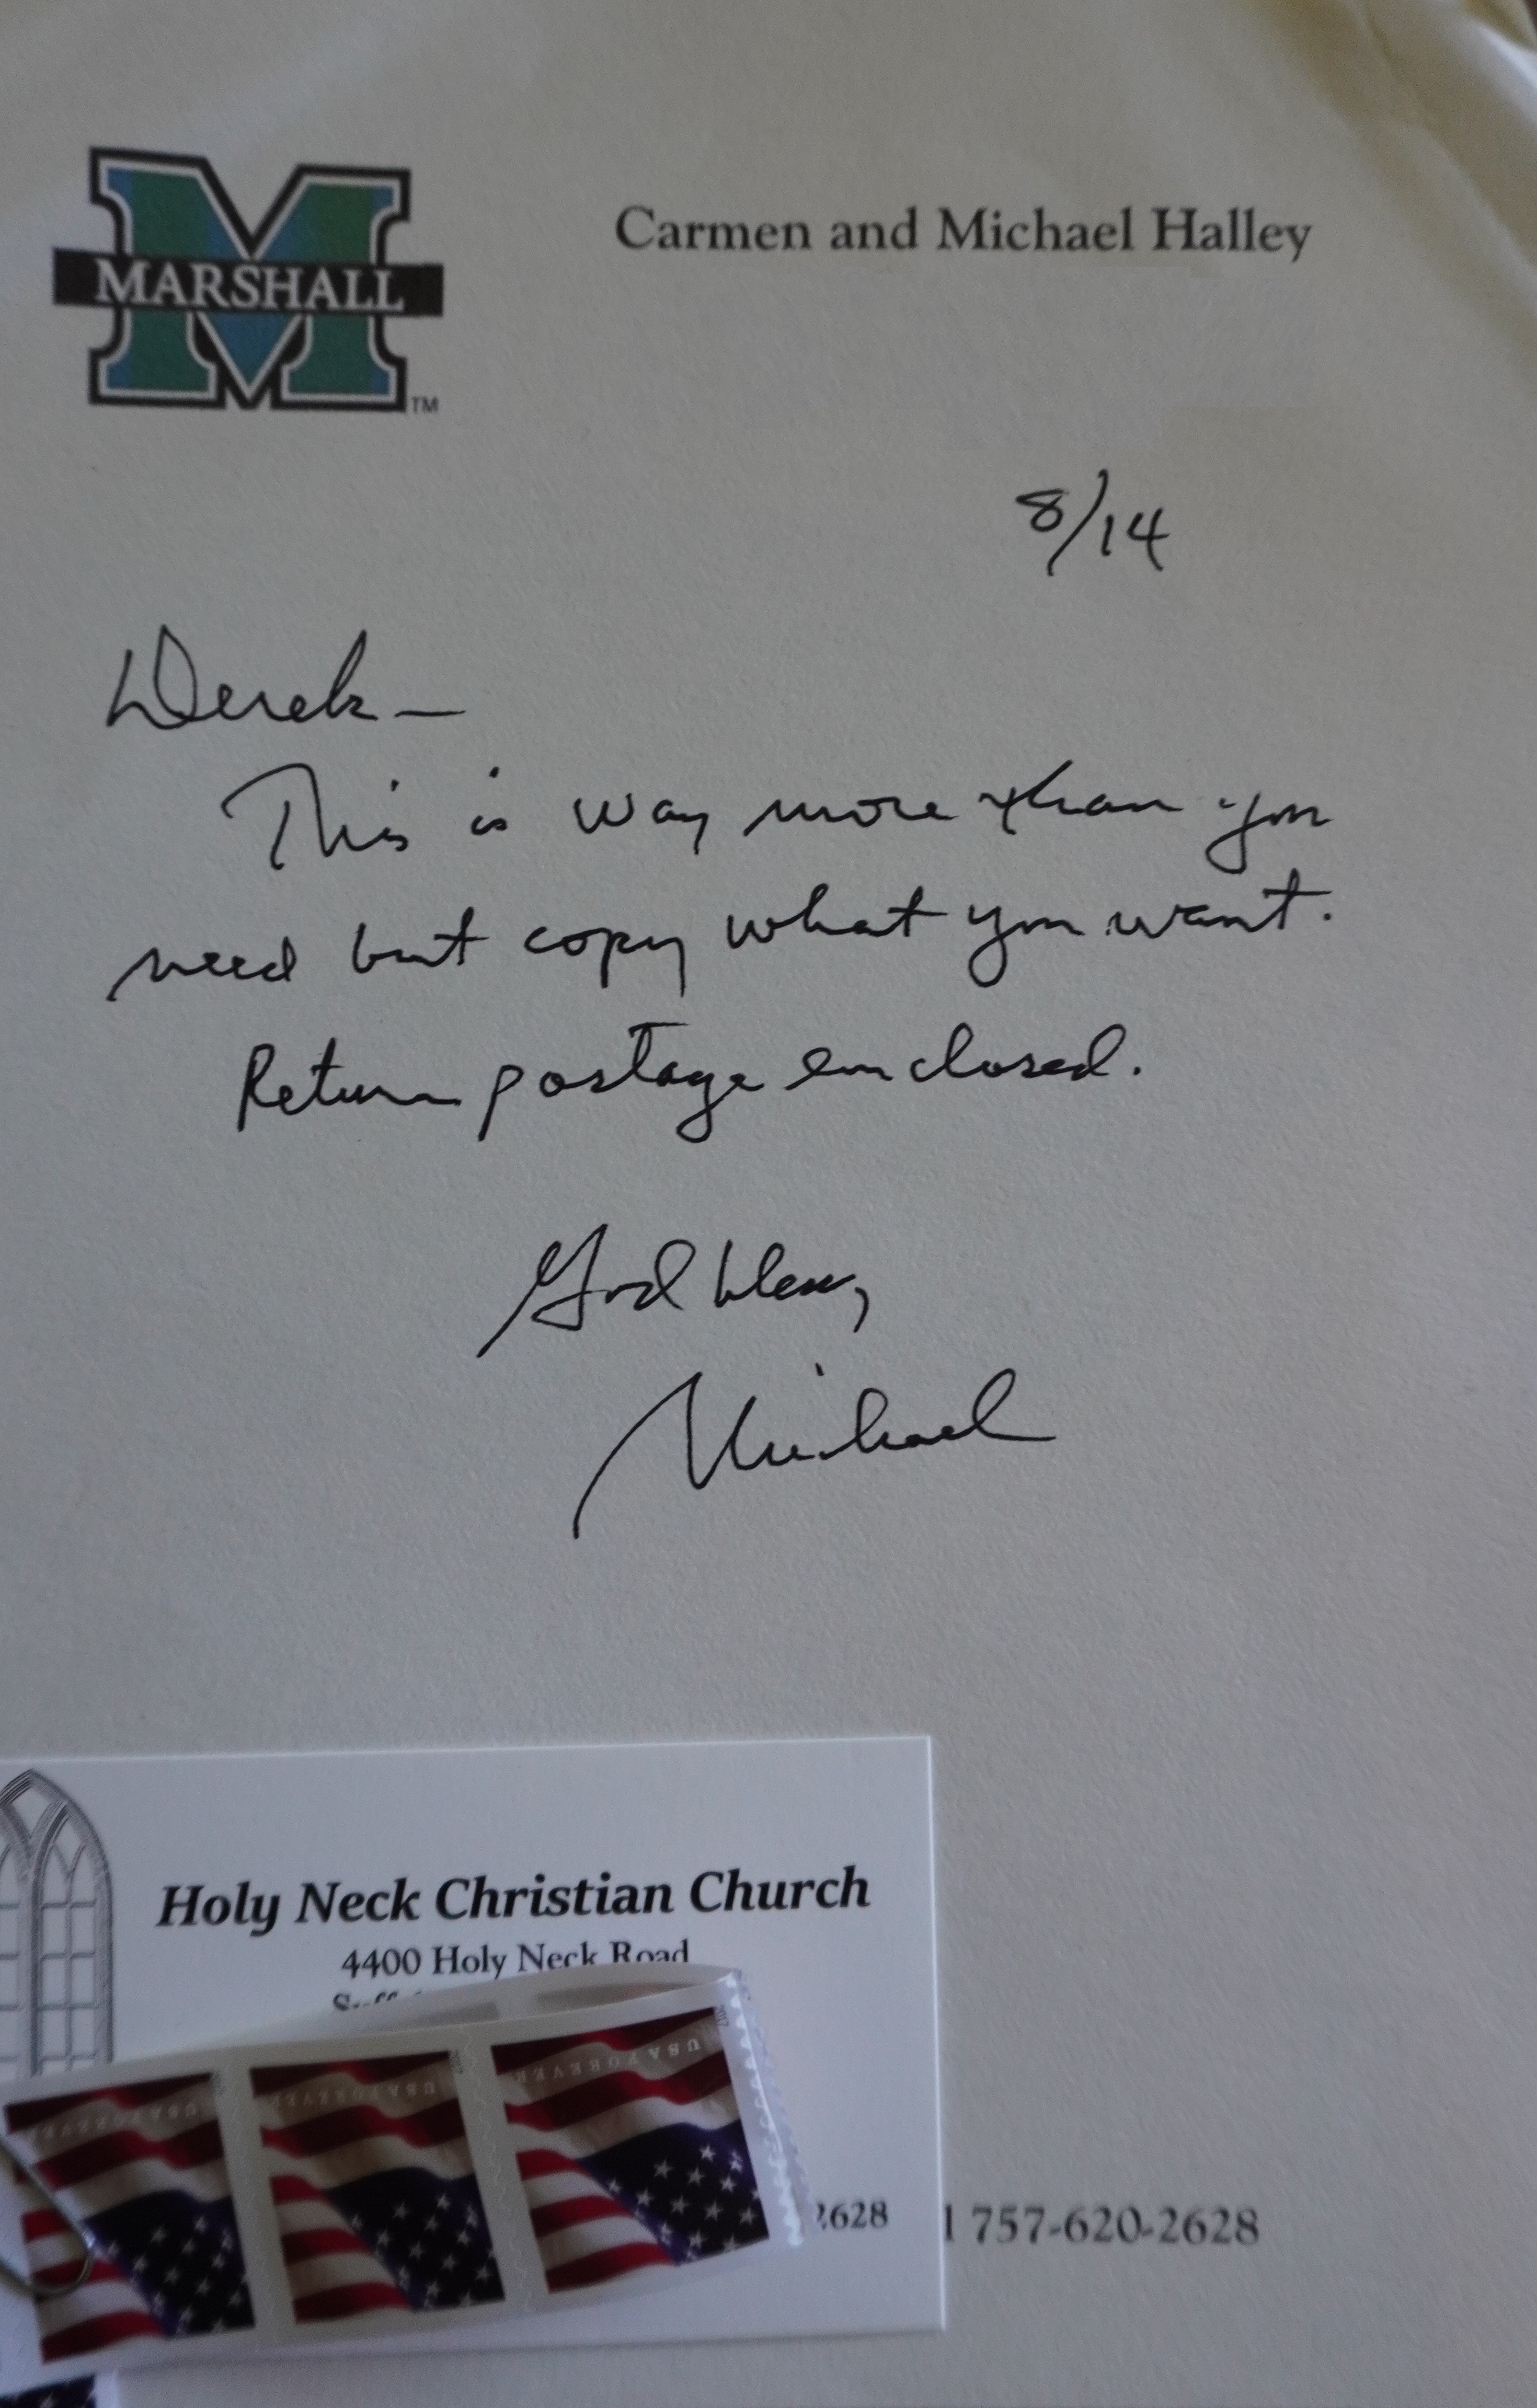 MARSHALL
TM
Carmen and Michael Halley
8/14
Derek—
This is way more than you
need but copy what you want.
Return postage enclosed.
God bless,
Michael
Holy Neck Christian Church
4400 Holy Neck Road
USA FOREVER USA
USA FOREVER USA
USA FOREVER USA
2628
757-620-2628